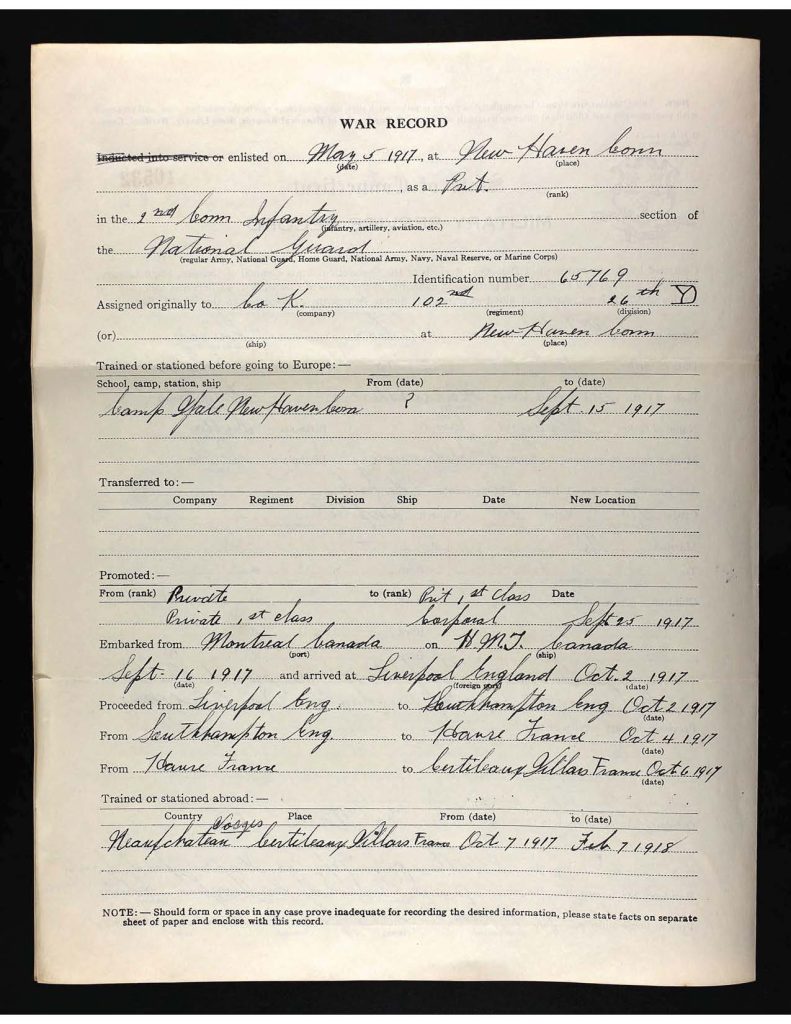 WAR RECORD
Inducted into service or enlisted on May 5 1917, at New Haven Conn
(date) (place)
, as a Prt.
(rank)
in the 2nd Conn Infantry section of
(infantry, artillery, aviation, etc.)
the National Guard
(regular Army, National Guard, Home Guard, National Army, Navy, Naval Reserve, or Marine Corps)
Identification number 65769
Assigned originally to Co K. 102nd 26th YD
(company) (regiment) (division)
(or) at New Haven Conn
(ship) (place)
Trained or stationed before going to Europe:—
School, camp, station, ship From (date) to (date)
Camp Yale New Haven Conn ? Sept 15 1917
Transferred to:—
Company Regiment Division Ship Date New Location
Promoted:—
From (rank) Private to (rank) Prit 1st Class Date
Private 1st class Corporal Sept 25 1917
Embarked from Montreal Canada on H.M.T. Canada
(port) (ship)
Sept. 16 1917 and arrived at Liverpool England Oct. 2 1917
(date) (foreign port) (date)
Proceeded from Liverpool Eng. to Southhampton Eng Oct 2 1917
(date)
From Southhampton Eng to Havre France Oct 4 1917
(date)
From Havre France to Certileaux Villars France Oct 6 1917
(date)
Trained or stationed abroad:—
Country Place From (date) to (date)
Vosges
Neaufchateau Certileaux Villars France Oct 7 1917 Feb 7 1918
NOTE:— Should form or space in any case prove inadequate for recording the desired information, please state facts on separate
sheet of paper and enclose with this record.